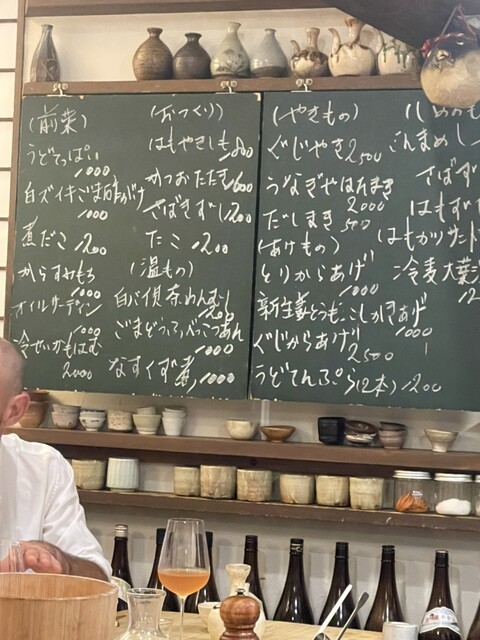 (前菜)
うどてっぱい
1000
白ズイキごま酢がけ
1000
煮だこ 1200
からすみもち
1000
オイルサーディン
1000
冷せいかもはむ
2000
(おつくり)
はもやきしも 1800
かつおたたき 1600
さばきずし 1200
たこ 1200
(温もの)
白バイ貝茶わんむし
1200
ごまどうふべっこうあん
1000
なすくず煮 1000
(やきもの)
ぐじやき 2500
うなぎやはたまき
2000
だしまき 500
(あげもの)
とりからあげ
1000
新生姜とうもろこしかきあげ
1000
ぐじからあげ
2500
うどてんぷら(2本) 1200
(しめのも
ごんまめし
さばず
はもず
はもカツサンド
冷麦大葉